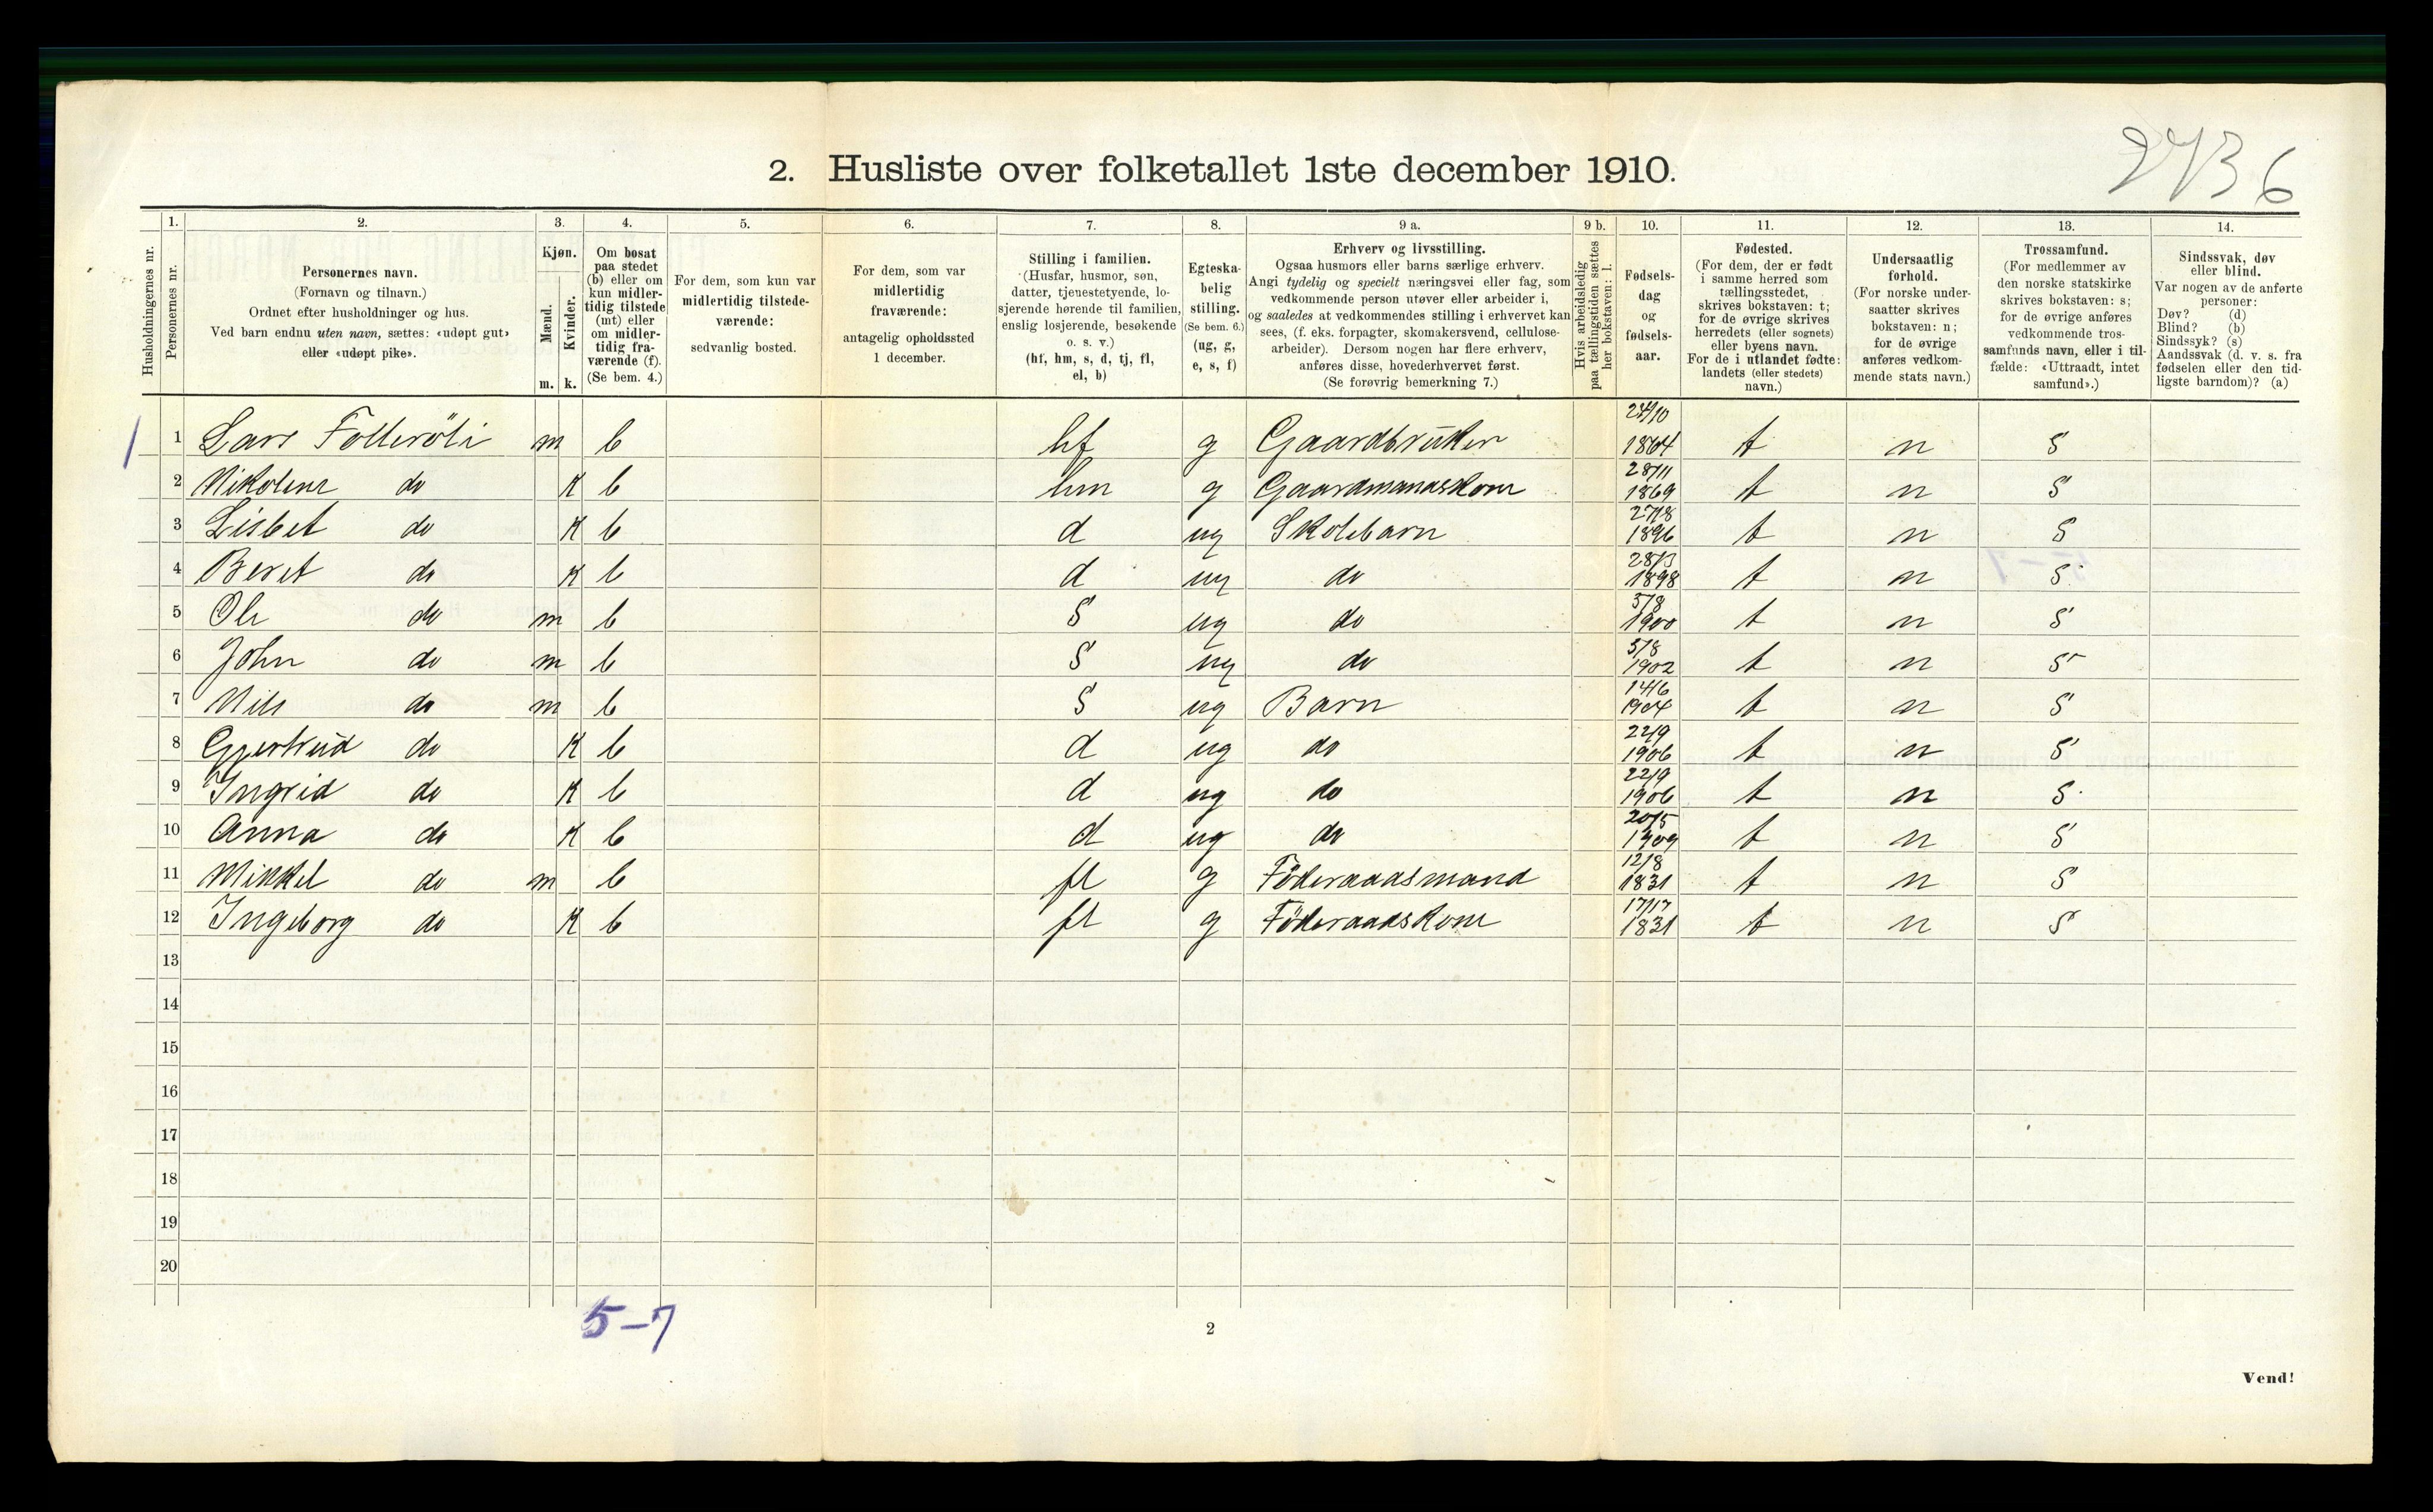 2. Husliste over folketallet 1ste december 1910.
2736
1. 2. 3. 4. 5. 6. 7. 8. 9 a. 9 b. 10. 11. 12. 13. 14.
Husholdningernes nr.
Personernes nr.
Personernes navn.
(Fornavn og tilnavn.)
Ordnet efter husholdninger og hus.
Ved barn endnu uten navn, sættes: «udøpt gut»
eller «udøpt pike».
Kjøn.
Mænd.
Kvinder.
m. k.
Om bosat
paa stedet
(b) eller om
kun midler-
tidig tilstede
(mt) eller
om midler-
tidig fra-
værende (f).
(Se bem. 4.)
For dem, som kun var
midlertidig tilstede-
værende:
sedvanlig bosted.
For dem, som var
midlertidig
fraværende:
antagelig opholdssted
1 december.
Stilling i familien.
(Husfar, husmor, søn,
datter, tjenestetyende, lo-
sjerende hørende til familien,
enslig losjerende, besøkende
o. s. v.)
(hf, hm, s, d, tj, fl,
el, b)
Egteska-
belig
stilling.
(Se bem. 6.)
(ug, g,
e, s, f)
Erhverv og livsstilling.
Ogsaa husmors eller barns særlige erhverv.
Angi tydelig og specielt næringsvei eller fag, som
vedkommende person utøver eller arbeider i,
og saaledes at vedkommendes stilling i erhvervet kan
sees, (f. eks. forpagter, skomakersvend, cellulose-
arbeider). Dersom nogen har flere erhverv,
anføres disse, hovederhvervet først.
(Se forøvrig bemerkning 7.)
Hvis arbeidsledig
paa tællingstiden sættes
her bokstaven: l.
Fødsels-
dag
og
fødsels-
aar.
Fødested.
(For dem, der er født
i samme herred som
tællingsstedet,
skrives bokstaven: t;
for de øvrige skrives
herredets (eller sognets)
eller byens navn.
For de i utlandet fødte:
landets (eller stedets)
navn.)
Undersaatlig
forhold.
(For norske under-
saatter skrives
bokstaven: n;
for de øvrige
anføres vedkom-
mende stats navn.)
Trossamfund.
(For medlemmer av
den norske statskirke
skrives bokstaven: s;
for de øvrige anføres
vedkommende tros-
samfunds navn, eller i til-
fælde: «Uttraadt, intet
samfund».)
Sindssvak, døv
eller blind.
Var nogen av de anførte
personer:
Døv? (d)
Blind? (b)
Sindssyk? (s)
Aandssvak (d. v. s. fra
fødselen eller den tid-
ligste barndom)? (a)
1 1 Lars m b hf g Gaardbruker 1864 t n S
2 Nikoline do K b hm g Gaardmandskone 28/11 1869 t n S
3 Lisbet do K b d ug Skolebarn 27/8 1896 t n S
4 Beret do K b d ug do 28/3 1898 t n S
5 Ole do m b S ug do 5/8 1900 t n S
6 John do m b S ug do 5/8 1902 t n S
7 Nils do m b S ug Barn 14/6 1904 t n S
8 Gjertrud do K b d ug do 22/9 1906 t n S
9 Ingrid do K b d ug do 22/9 1906 t n S
10 Anna do K b d ug do 20/5 1909 t n S
11 Mikkel do m b fl g Föderaadsmand 12/8 1831 t n S
12 Ingeborg do K b fl g Föderaadskone 1831 t n S
13
14
15
16
17
18
19
20
5-7
2
Vend!